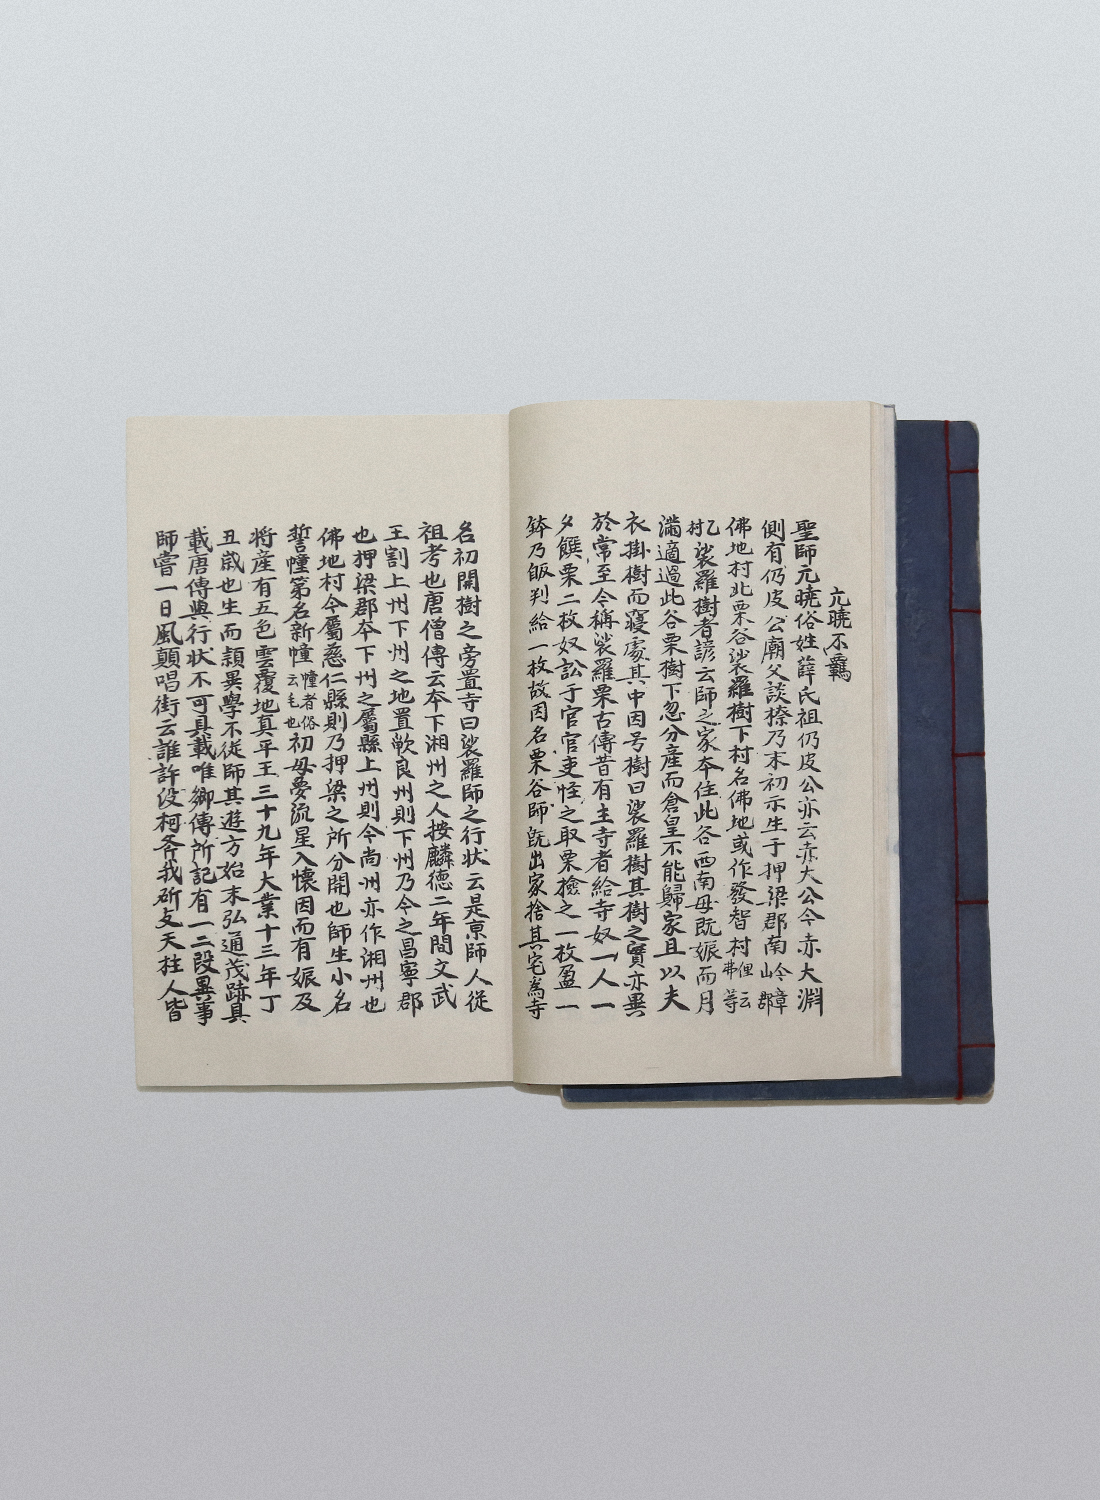 元曉不羈
聖師元曉俗姓薛氏祖仍皮公亦云赤大公今赤大淵
側有仍皮公廟父談㮈乃末初示生于押梁郡南今章山郡
佛地村北栗谷裟羅樹下村名佛地或作發智村俚云弗等
乙村裟羅樹者諺云師之家夲住此谷西南母既娠而月
滿適過此谷栗樹下忽分産而倉皇不能歸家且以夫
衣掛樹而寢處其中因号樹曰裟羅樹其樹之實亦異
於常至今稱裟羅栗古傳昔有主寺者給寺奴一人一
夕饌栗二枚奴訟于官官吏怪之取栗撿之一枚盈一
鉢乃皈判給一枚故因名栗谷師既出家捨其宅為寺
名初開樹之旁置寺曰裟羅師之行状云是亰師人從
祖考也唐僧傳云夲下湘州之人按麟德二年間文武
王割上州下州之地置歃良州則下州乃今之昌寧郡
也押梁郡夲下州之屬縣上州則今尚州亦作湘州也
佛地村今屬慈仁縣則乃押梁之所分開也師生小名
誓幢第名新幢幢者俗云毛也初母夢流星入懷因而有娠及
将産有五色雲覆地真平王三十九年大業十三年丁
丑歲也生而頴異學不從師其遊方始末弘通茂跡具
載唐傳與行状不可具載唯鄉傳所記有一二段異事
師嘗一日風顛唱街云誰許没柯斧我斫支天柱人皆